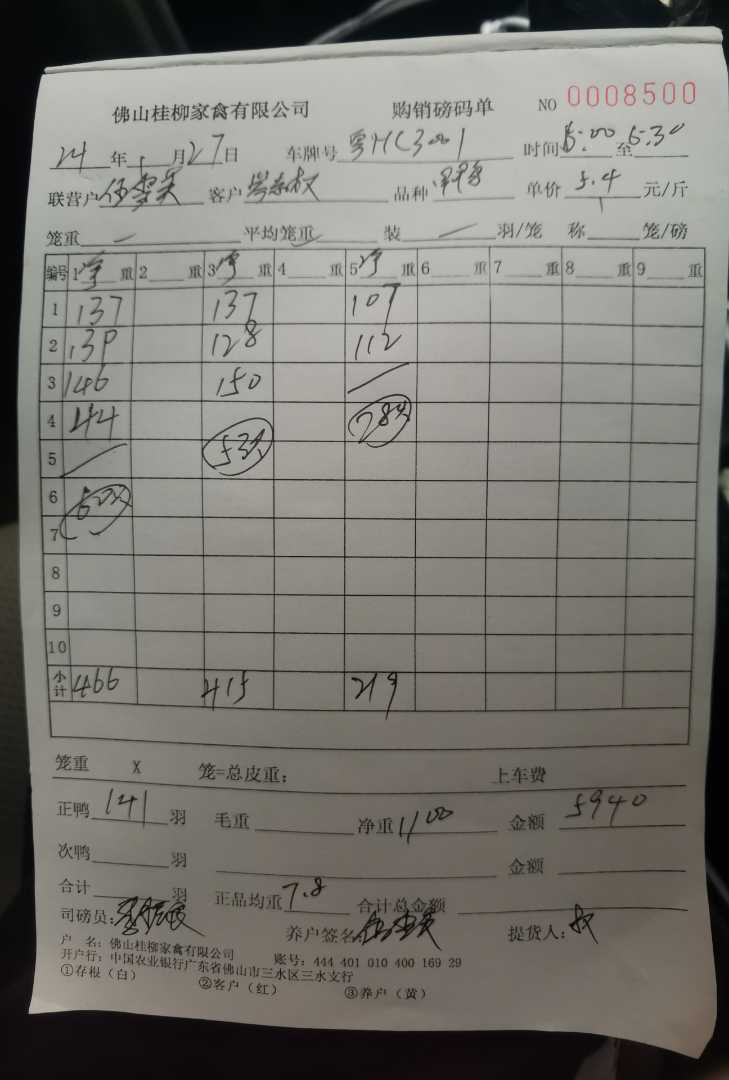 佛山桂柳家禽有限公司 购销磅码单 NO 0008500
24年1月27日 车牌号 粤HC3001 时间 5:00 至 5:30
联营户 客户 品种 单价 5.4 元/斤
笼重 — 平均笼重 — 装 — 羽/笼 称 笼/磅
编号 1 净 重 2 重 3 净 重 4 重 5 净 重 6 重 7 重 8 重 9 重
1 137 137 107
2 139 128 112
3 146 150
4 44
5
6
7
8
9
10
小计 466 415 219
笼重 X 笼=总皮重: 上车费
正鸭 141 羽 毛重 净重 1100 金额 5940
次鸭 羽 金额
合计 羽 正品均重 7.8 合计总金额
司磅员: 养户签名: 提货人:
户 名: 佛山桂柳家禽有限公司 账号: 444 401 010 400 169 29
开户行: 中国农业银行广东省佛山市三水区三水支行
①存根(白) ②客户(红) ③养户(黄)